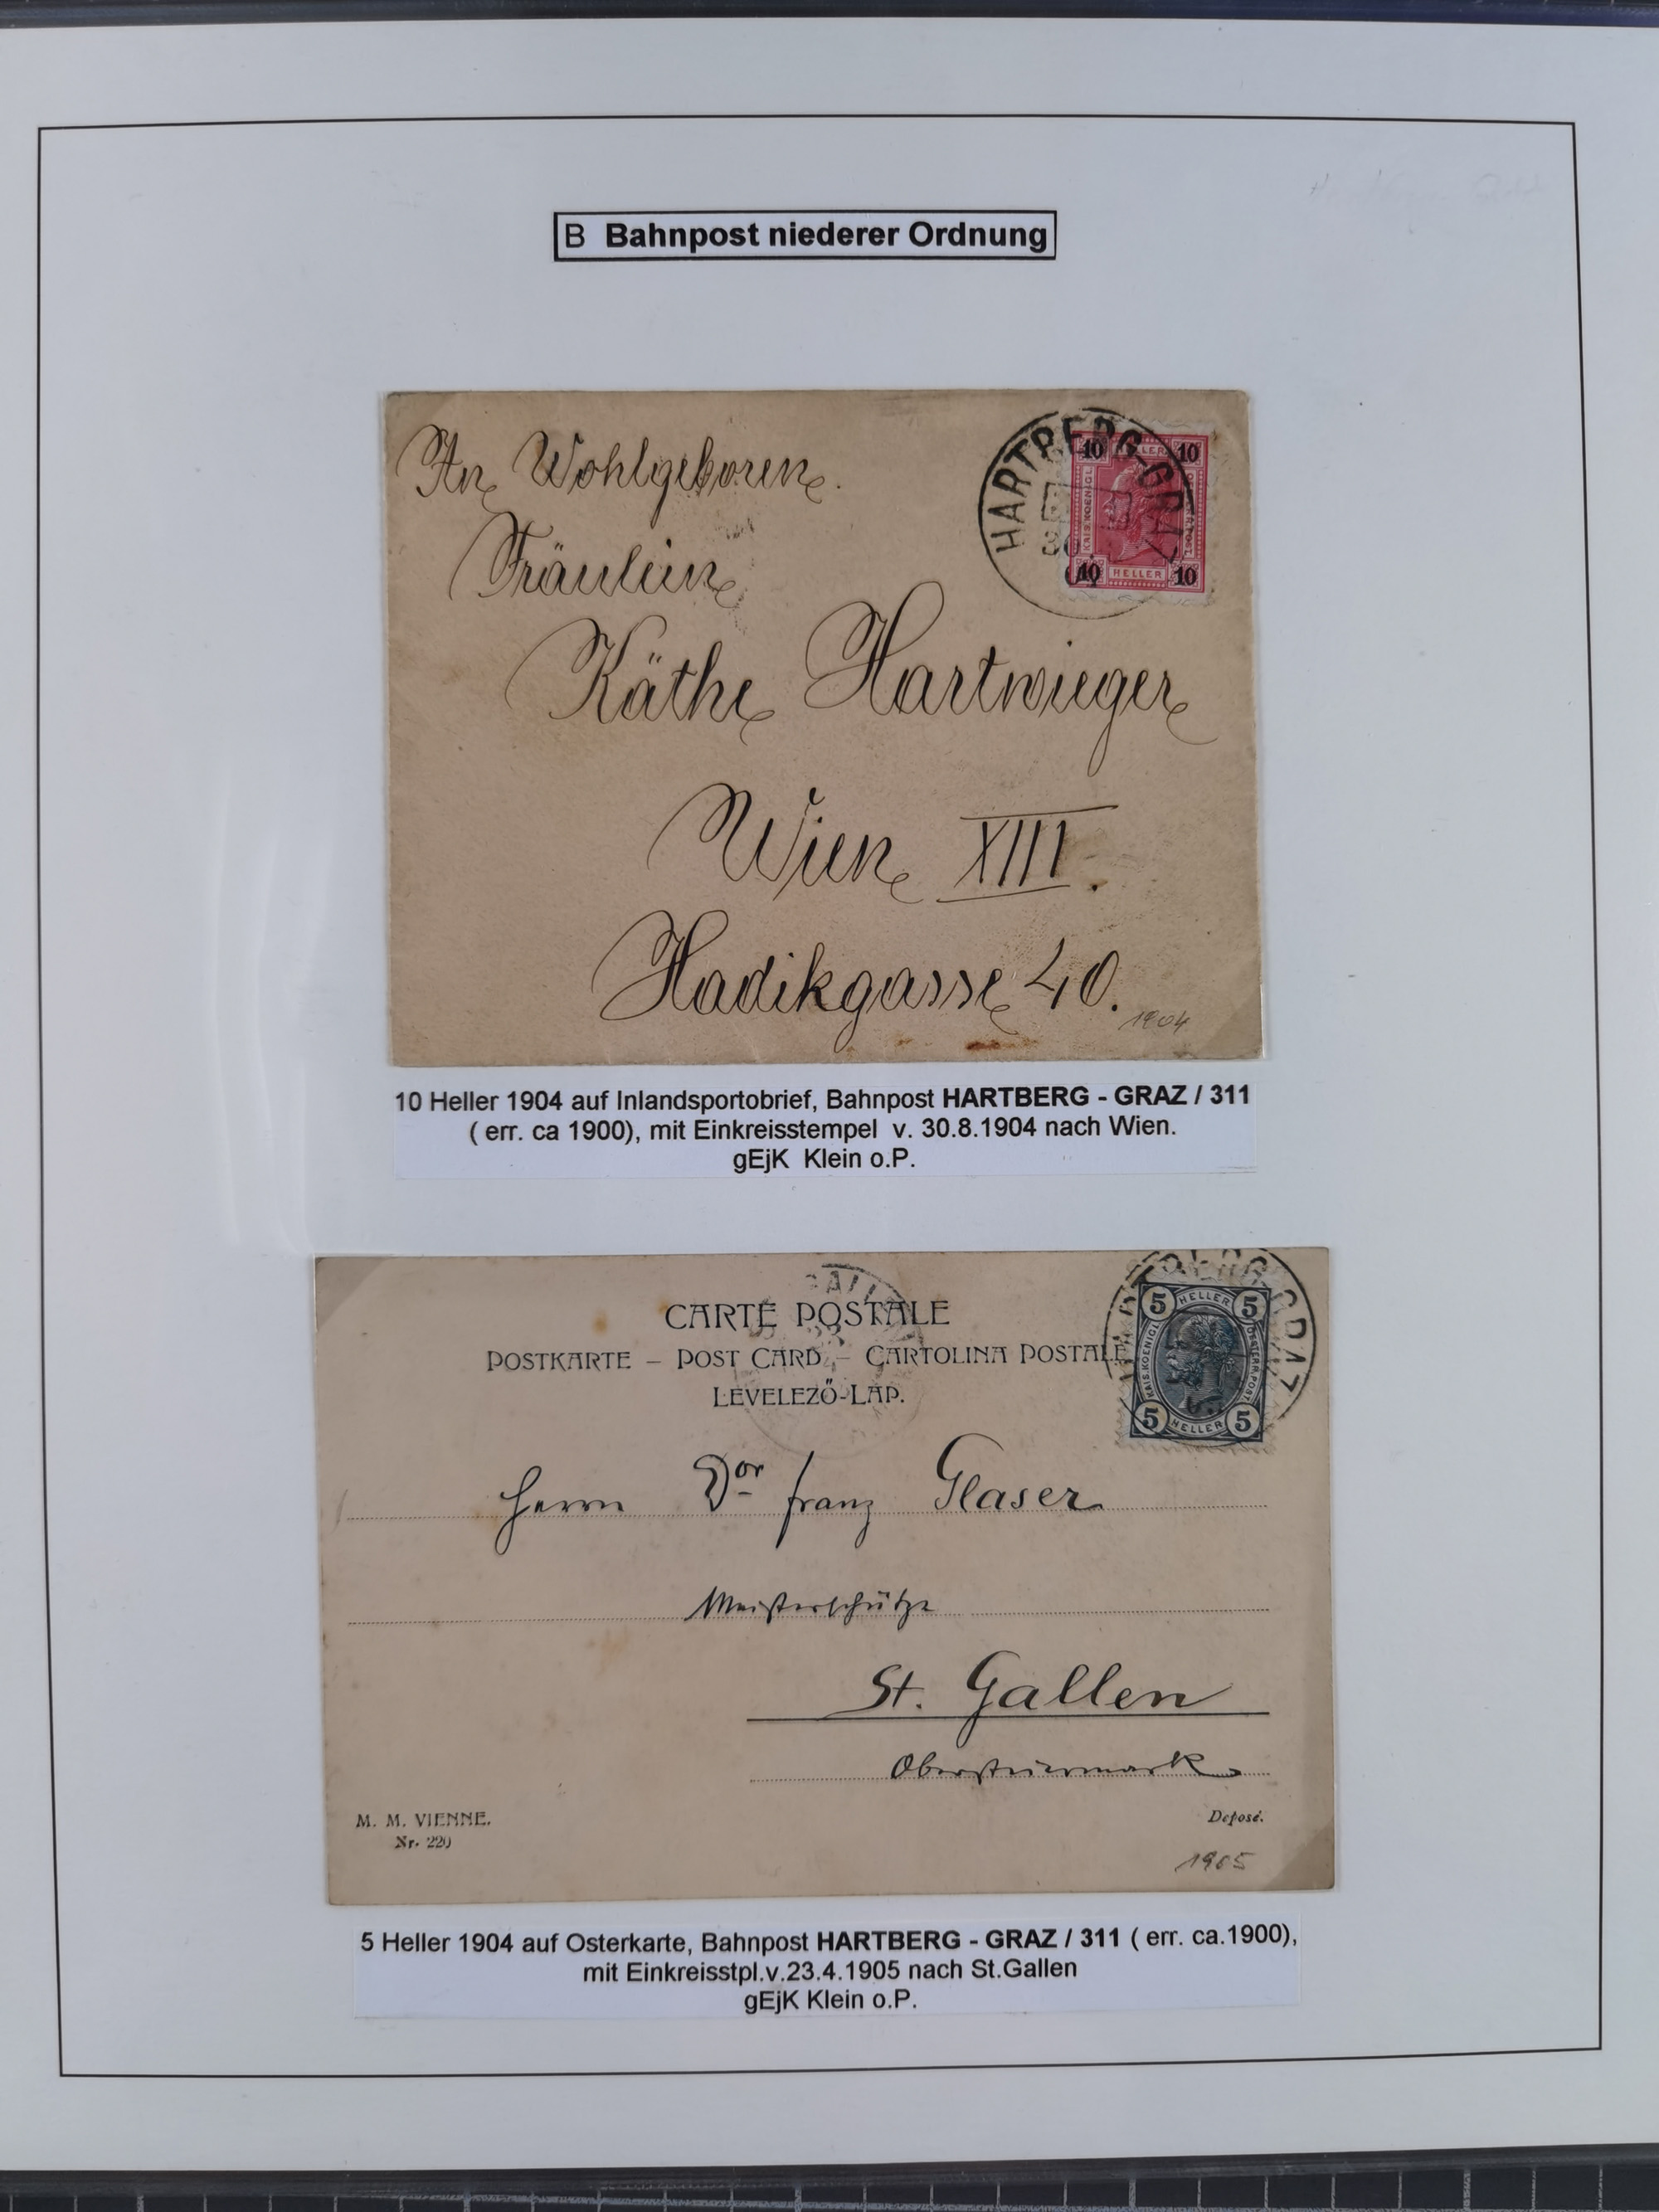 B Bahnpost niederer Ordnung
An Wohlgeboren
Fräulein
Käthe Hartwieger
Wien XIII.
Hadikgasse 40.
1904
HARTBERG-GRAZ
30.
10 HELLER 10
KAIS. KOENIGL
10 HELLER 10
10 Heller 1904 auf Inlandsportobrief, Bahnpost HARTBERG - GRAZ / 311
( err. ca 1900), mit Einkreisstempel v. 30.8.1904 nach Wien.
gEjK Klein o.P.
CARTE POSTALE
POSTKARTE – POST CARD – CARTOLINA POSTALE
LEVELEZŐ-LAP.
5 HELLER 5
KAIS. KOENIGL. OESTERR. POST.
5 HELLER 5
Herrn Dor Franz Glaser
Meisterschütze
St. Gallen
Obersteiermark
M. M. VIENNE.
Nr. 220
Deposé.
1905
5 Heller 1904 auf Osterkarte, Bahnpost HARTBERG - GRAZ / 311 ( err. ca.1900),
mit Einkreisstpl.v.23.4.1905 nach St.Gallen
gEjK Klein o.P.